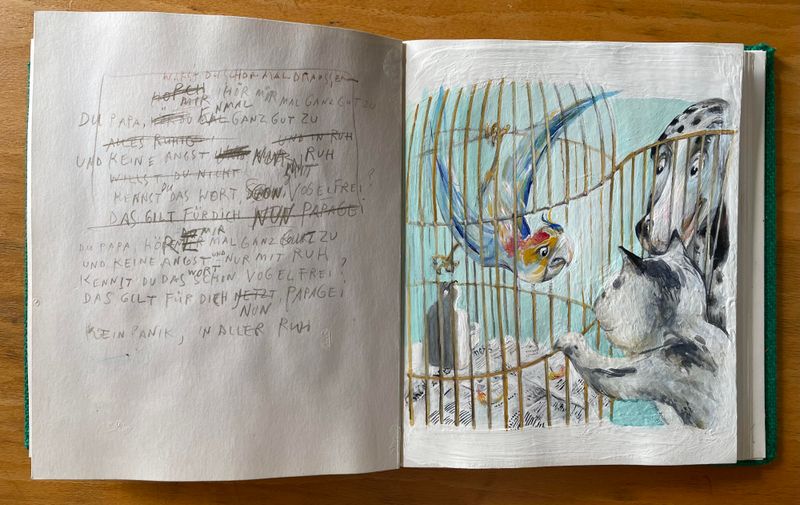 WARST DU SCHON MAL DRAUSSEN
HORCH HÖR MIR MAL GANZ GUT ZU
MIR NMAL
DU PAPA, HÖR DU MAL GANZ GUT ZU
ALLES RUHIG UND IN RUH
UND KEINE ANGST NUR RUH
WILLST DU NICHT MIT
KENNST DU DAS WORT, SCHON VOGELFREI?
DAS GILT FÜR DICH NUN PAPAGEI
DU PAPA HÖR MIR MAL GANZ GUT ZU
UND KEINE ANGST UND NUR MIT RUH
KENNST DU DAS WORT SCHON VOGELFREI?
DAS GILT FÜR DICH JETZT PAPAGEI
NUN
KEIN PANIK, IN ALLER RUH